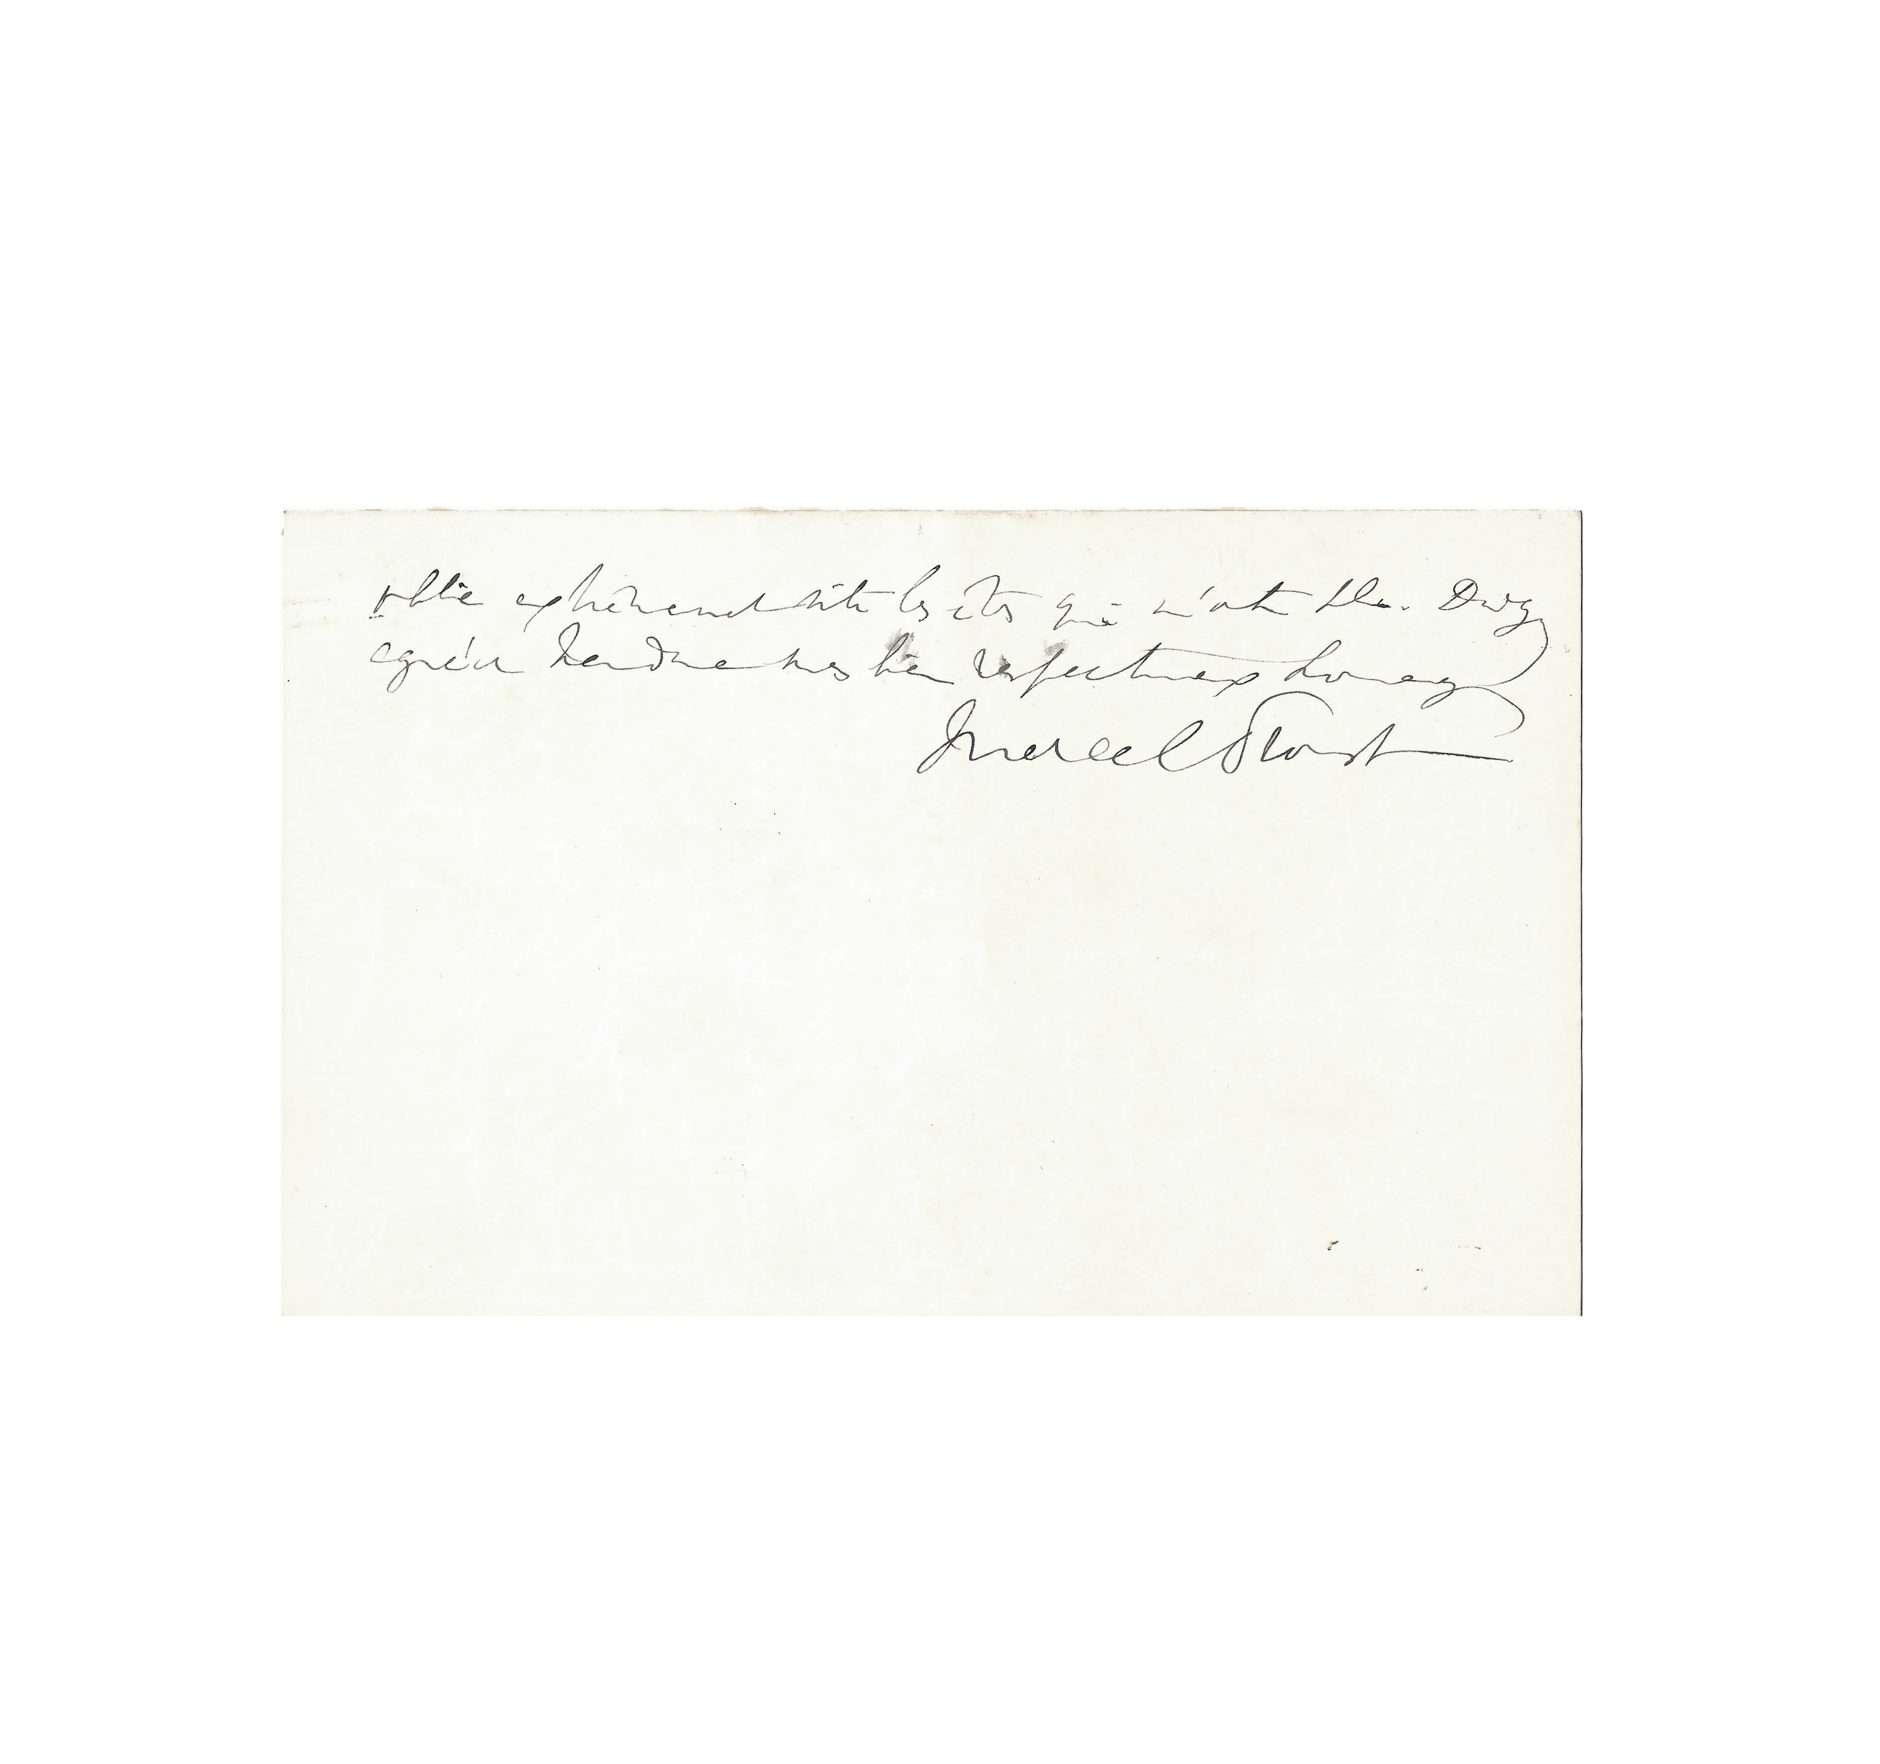 oublie extrêmement vite les êtres qui m'ont plu. Daignez
agréer Madame mes bien respectueux hommages
Marcel Proust